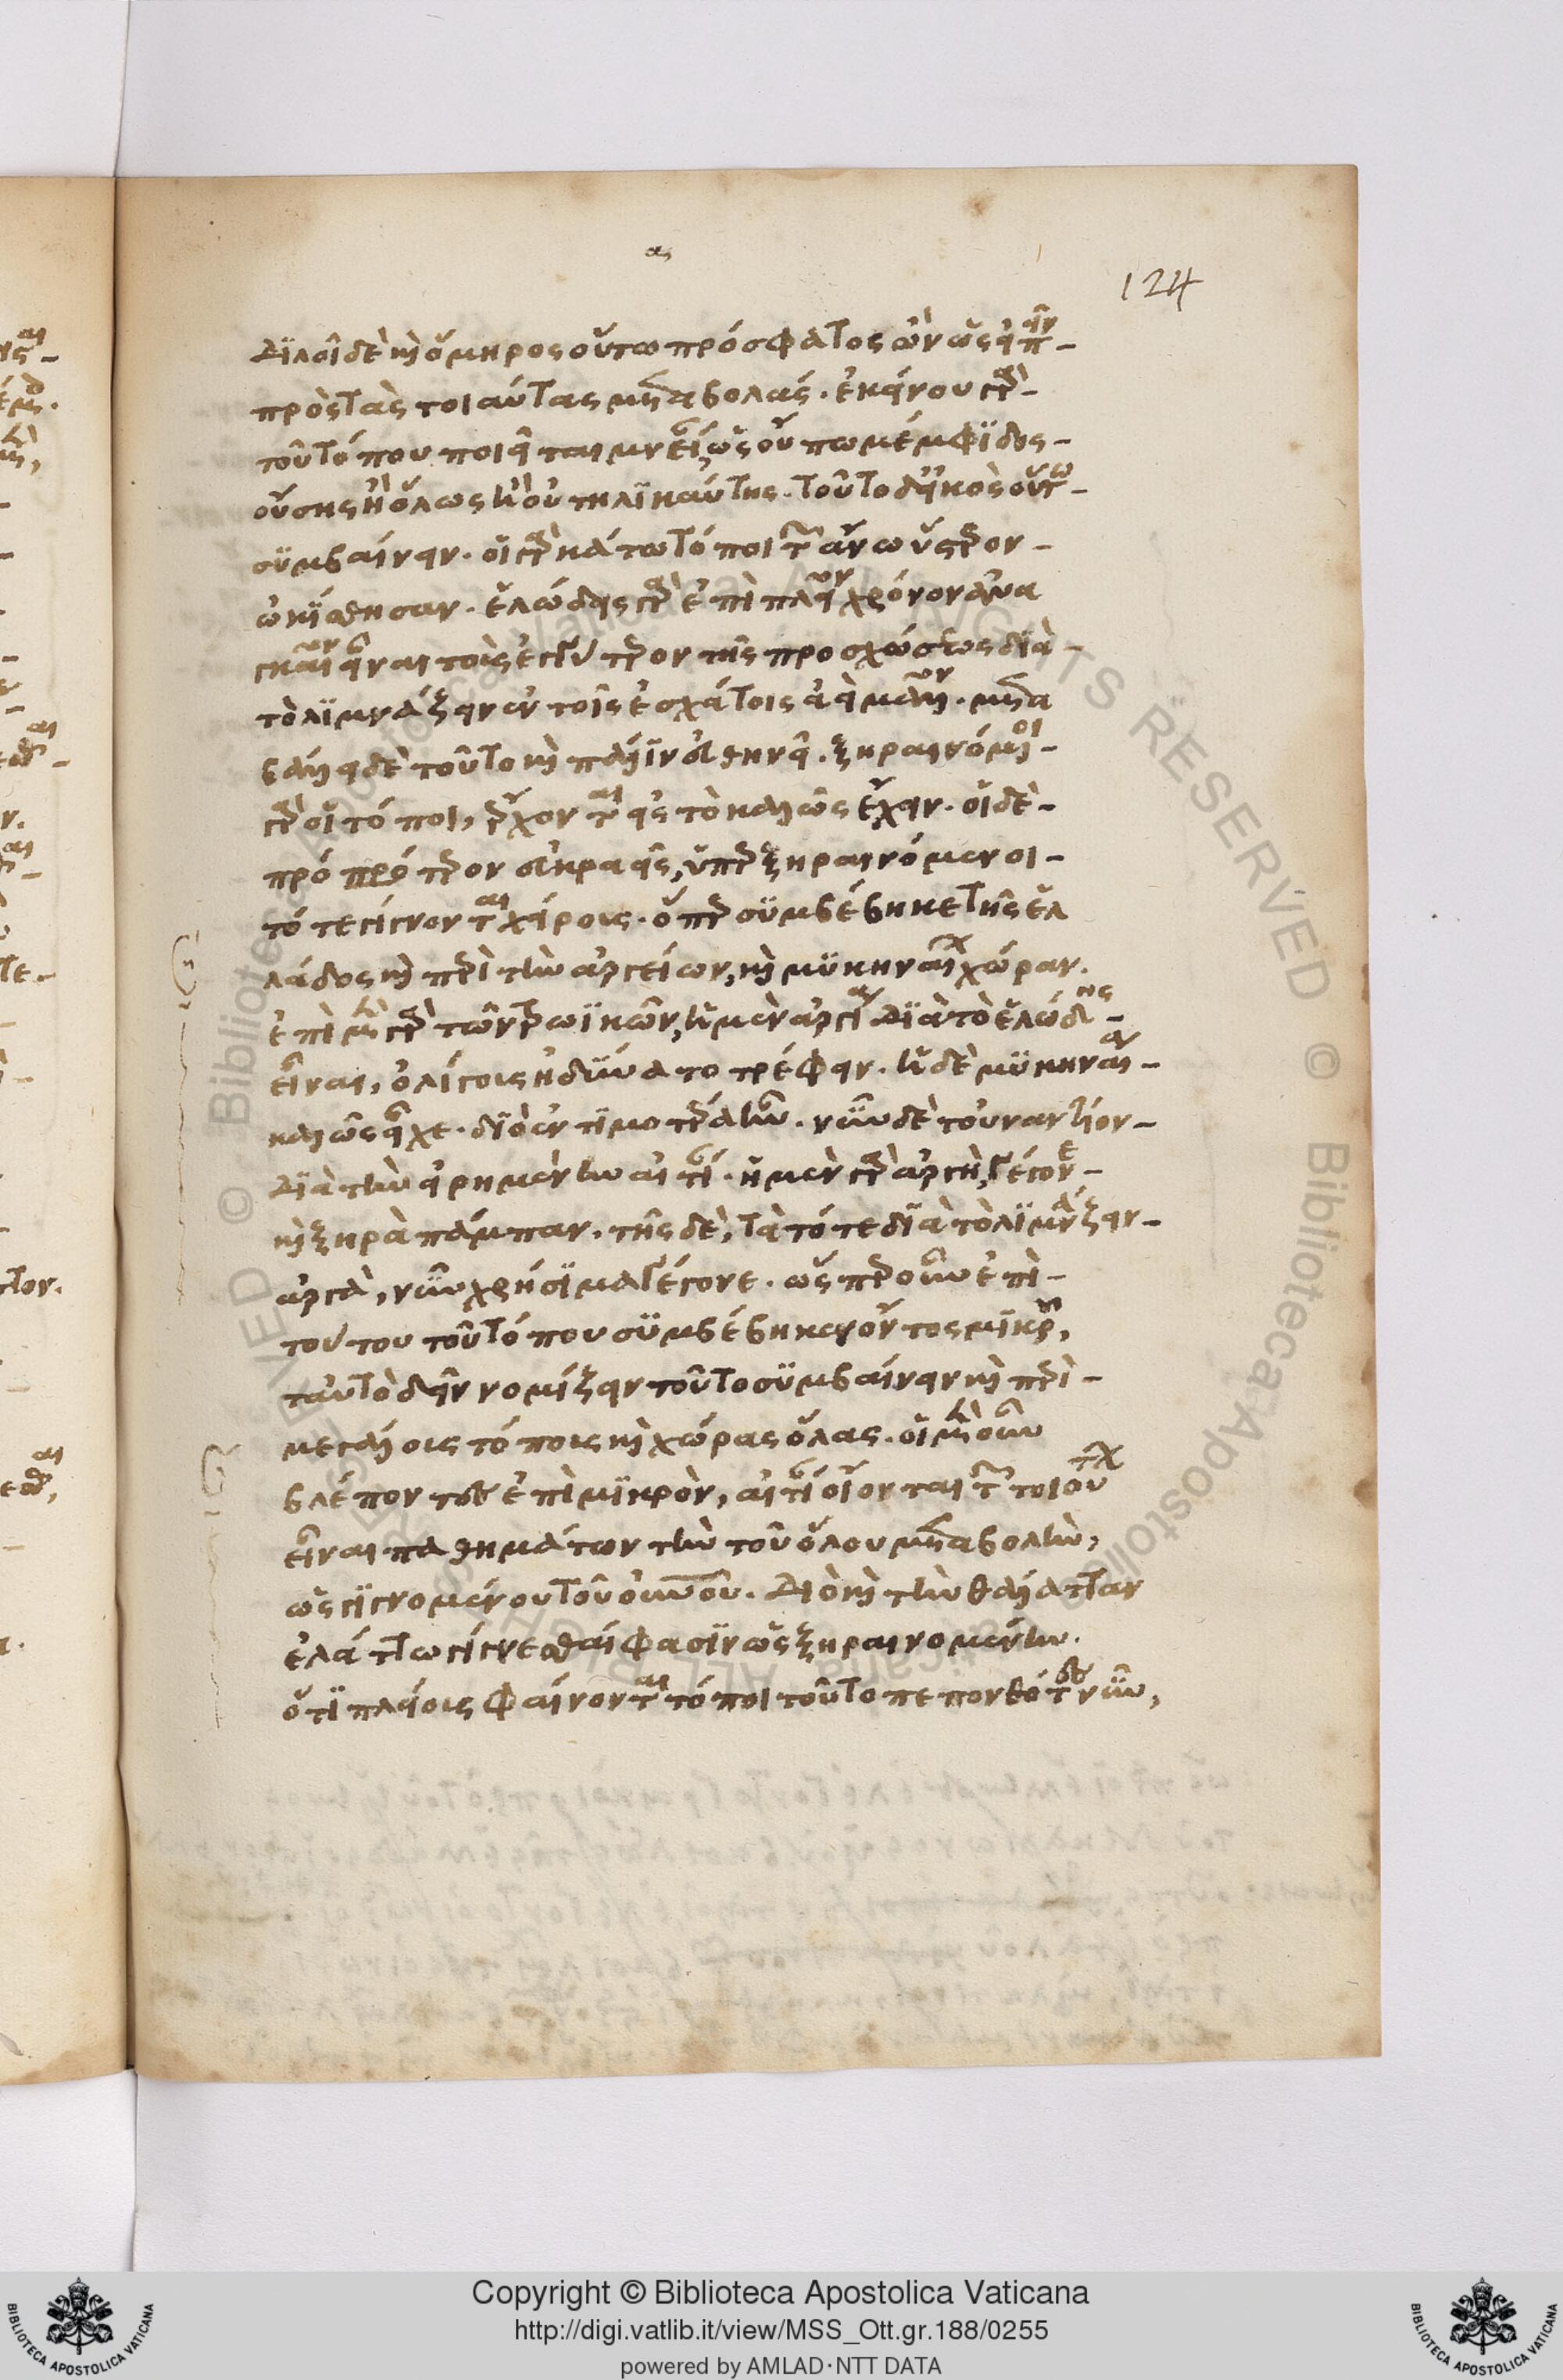 α
124
δηλοῖ δὲ καὶ ὅμηρος οὕτω πρόσφατος ὢν ὡς εἰπεῖν
πρὸς τὰς τοιαύτας μεταβολάς. ἐκείνου γὰρ
τοῦ τόπου ποιεῖται μνείαν, ὡς οὔπω μέμφιδος
οὔσης ἢ ὅλως ἢ οὐ τηλικαύτης. τοῦτο δ' εἰκὸς οὕτω
συμβαίνειν. οἱ γὰρ κάτω τόποι τῶν ἄνω ὕστερον
ὠκίσθησαν. ἑλώδεις γὰρ ἐπὶ πλείω χρόνον ἀναγ
καῖον εἶναι τοῖς ἔγγιον τῆς προσχώσεως διὰ
τὸ λιμνάζειν ἐν τοῖς ἐσχάτοις ἀεὶ μᾶλλον. μετα
βάλλει δὲ τοῦτο καὶ πάλιν εὐθηνεῖ. ξηραινόμενοι
γὰρ οἱ τόποι, ἔρχονται εἰς τὸ καλῶς ἔχειν. οἱ δὲ
πρό πρότερον εὐκραεῖς, ὑπερξηραινόμενοι
τότε γίγνονται χείρους. ὅπερ συμβέβηκε τῆς ἑλ
λάδος καὶ περὶ τὴν ἀργείων, καὶ μυκηναίων χώραν.
ἐπὶ μὲν γὰρ τῶν τρωϊκῶν, ἡ μὲν ἀργεία διὰ τὸ ἑλώδης
εἶναι, ὀλίγοις ἠδύνατο τρέφειν. ἡ δὲ μυκηναία
καλῶς εἶχε. διὸ ἐντιμοτέρα ἦν. νῦν δὲ τοὐναντίον
διὰ τὴν εἰρημένην αἰτίαν. ἡ μὲν γὰρ ἀργὴ, γέγονε
καὶ ξηρὰ πάμπαν. τῆς δὲ, τὰ τότε διὰ τὸ λιμνάζειν
ἀργὰ, νῦν χρήσιμα γέγονε. ὥσπερ οὖν ἐπὶ
τούτου τοῦ τόπου συμβέβηκεν ὄντος μικροῦ,
ταὐτὸ δεῖν νομίζειν τοῦτο συμβαίνειν καὶ περὶ
μεγάλους τόποις καὶ χώρας ὅλας. οἱ μὲν οὖν
βλέποντες ἐπὶ μικρὸν, αἰτίαν οἴονται τῶν τοιούτων
εἶναι παθημάτων τὴν τοῦ ὅλου μεταβολὴν,
ὡς γιγνομένου τοῦ οὐρανοῦ. διὸ καὶ τὴν θάλατταν
ἐλάττω γίγνεσθαί φασιν ὡς ξηραινομένην.
ὅτι πλείους φαίνονται τόποι τοῦτο πεπονθότες νῦν,
Copyright © Biblioteca Apostolica Vaticana
http://digi.vatlib.it/view/MSS_Ott.gr.188/0255
powered by AMLAD·NTT DATA